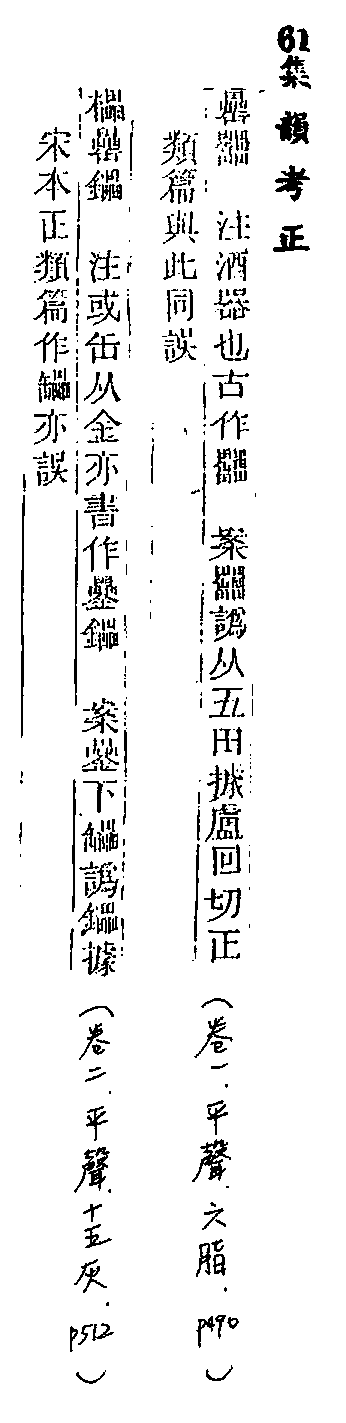 61集韻考正
注酒器也古作 案 譌从五田據盧回切正
類篇與此同誤
(卷一.平聲.六脂.p490)
注或缶从金亦書作 案 下 譌 據
宋本正類篇作 亦誤
(卷二.平聲.十五灰.p512)